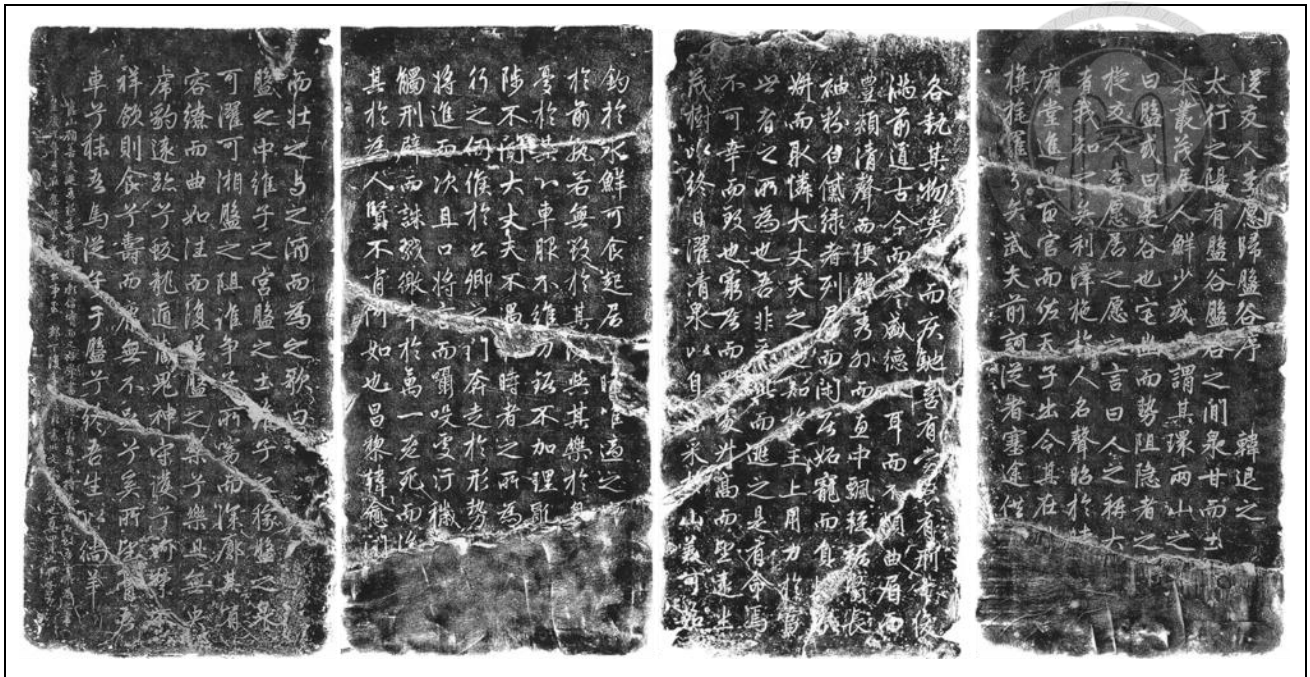 送友人李愿歸盤谷序 韓退之
太行之陽有盤谷盤谷之間泉甘而土
木叢茂居人鮮少或謂其環兩山之
曰盤或曰是谷也宅幽而勢阻隱者之
友人李愿居之愿之言曰人之稱大
者我知之矣利澤施於人名聲昭於時
廟堂進退百官而佐天子出令其在
旗旄羅弓矢武夫前訶從者塞途供
各執其物夾道而疾馳喜有賞怒有刑才俊
滿前道古今而譽盛德入耳而不煩曲眉而
豐頰清聲而便體秀外而惠中飄輕裾翳長
袖粉白黛綠者列屋而閑居妬寵而負恃
妍而取憐大丈夫之遇知於主上用力於當
世者之所為也吾非惡此而逃之是有命焉
不可幸而致也窮居而野處升高而望遠坐
茂樹以終日濯清泉以自采山美可茹
釣於水鮮可食起居無時惟適之
於前孰若無毀於其後與其樂於身
憂於其心車服不維刀鋸不加理亂
陟不聞大丈夫不遇於時者之所為
行之伺候於公卿之門奔走於形勢
將進而次且口將言而囁嚅處汙穢
觸刑辟而誅戮徼幸於萬一老死而後
其於為人賢不肖何如也昌黎韓愈聞
而壯之與之酒而為之歌曰
盤之中維子之宮盤之土維子之稼盤之泉
可濯可湘盤之阻誰爭子所窈而深廓其有
容繚而曲如往而復嗟盤之樂兮樂且無央
虎豹遠跡兮蛟龍遁藏鬼神守護兮呵禁不
祥飲則食兮壽而康無不足兮奚所望膏吾
車兮秣吾馬從子于盤兮終吾生以徜徉